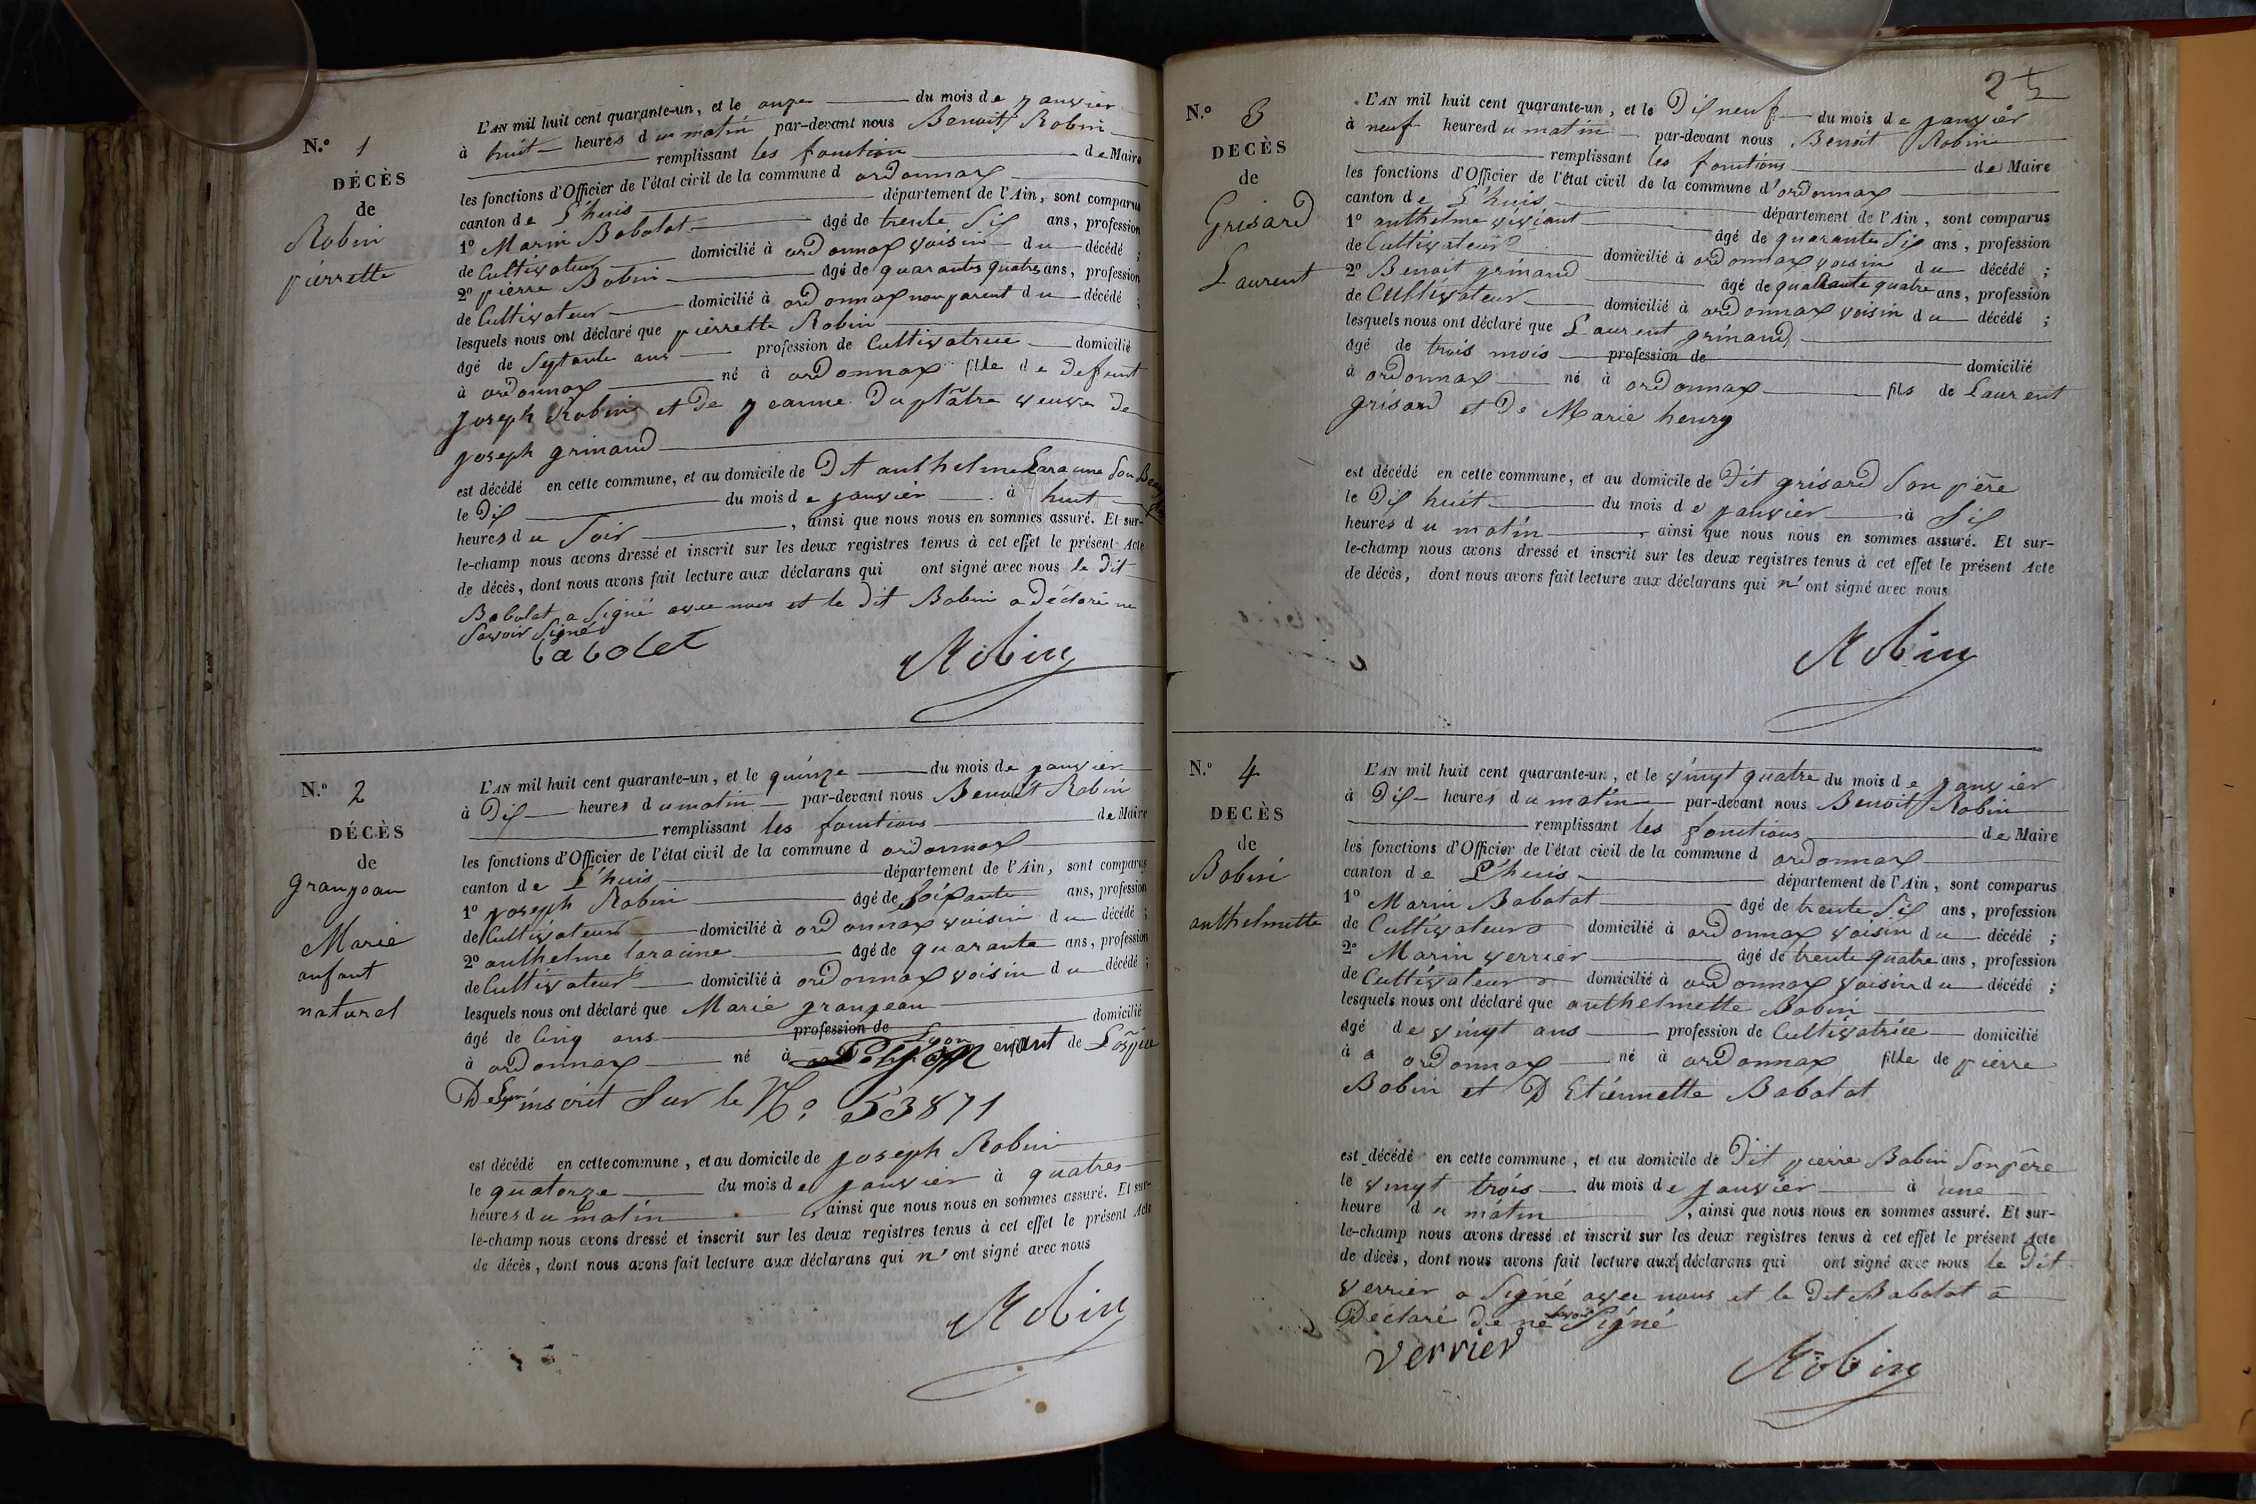 N.º 1
DÉCÈS
de
Robin
pierrette
L'AN mil huit cent quarante-un, et le onze du mois de janvier
à huit heures du matin par-devant nous Benoit Robin
remplissant les fonction de Maire
les fonctions d'Officier de l'état civil de la commune d ordonnax
canton de L'huis département de l'Ain, sont comparus
1º Marin Babolat âgé de trente Six ans, profession
de Cultivateur domicilié à ordonnax voisin du décédé ;
2º pierre Bobin âgé de quarante quatre ans, profession
de Cultivateur domicilié à ordonnax non parent du décédé ;
lesquels nous ont déclaré que pierrette Robin
âgé de Septante ans profession de Cultivatrice domicilié
à ordonnax né à ordonnax fille de defunt
Joseph Robin et De jeanne Duplâtre veuve de
joseph grinand
est décédé en cette commune, et au domicile de Dit anthelme Laracine Son Beau
le Dix du mois de janvier à huit
heures du Soir, ainsi que nous nous en sommes assuré. Et sur-
le-champ nous avons dressé et inscrit sur les deux registres tenus à cet effet le présent Acte
de décès, dont nous avons fait lecture aux déclarans qui ont signé avec nous le Dit
Babolat a Signé avec nous et le Dit Bobin a Déclaré ne
Savoir Signé
babolet Robin
N.º 2
DÉCÈS
de
granjean
Marie
enfant
naturel
L'AN mil huit cent quarante-un, et le quinze du mois de janvier
à Dix heures du matin par-devant nous Benoit Robin
remplissant les fonctions de Maire
les fonctions d'Officier de l'état civil de la commune d ordonnax
canton de L'huis département de l'Ain, sont comparus
1º joseph Robin âgé de Soixante ans, profession
de Cultivateur domicilié à ordonnax voisin du décédé ;
2º anthelme laracine âgé de quarante ans, profession
de Cultivateur domicilié à ordonnax voisin du décédé ;
lesquels nous ont déclaré que Marie granjean
âgé de Cinq ans profession de domicilié
à ordonnax né à Lyon enfant de L'ospice
De Lyon inscrit Sur le No. 53871
est décédé en cette commune, et au domicile de joseph Robin
le quatorze du mois de janvier à quatres
heures du matin, ainsi que nous nous en sommes assuré. Et sur-
le-champ nous avons dressé et inscrit sur les deux registres tenus à cet effet le présent Acte
de décès, dont nous avons fait lecture aux déclarans qui n' ont signé avec nous
Robin
N.º 3
DECÈS
de
Grisard
Laurent
25
L'AN mil huit cent quarante-un, et le Dix neuf du mois de janvier
à neuf heures du matin par-devant nous Benoit Robin
remplissant les fonctions de Maire
les fonctions d'Officier de l'état civil de la commune d'ordonnax
canton de L'huis département de l'Ain, sont comparus
1º anthelme viviant âgé de quarante Six ans, profession
de Cultivateur domicilié à ordonnax voisin du décédé ;
2º Benoit grinand âgé de quarante quatre ans, profession
de Cultivateur domicilié à ordonnax voisin du décédé ;
lesquels nous ont déclaré que Laurent grinand
âgé de trois mois profession de domicilié
à ordonnax né à ordonnax fils de Laurent
grisard et De Marie henry
est décédé en cette commune, et au domicile de Dit grisard Son père
le Dix huit du mois de janvier à Six
heures du matin, ainsi que nous nous en sommes assuré. Et sur-
le-champ nous avons dressé et inscrit sur les deux registres tenus à cet effet le présent Acte
de décès, dont nous avons fait lecture aux déclarans qui n' ont signé avec nous
Robin
N.º 4
DECÈS
de
Bobin
anthelmette
L'AN mil huit cent quarante-un, et le vingt quatre du mois de janvier
à Dix heures du matin par-devant nous Benoit Robin
remplissant les fonctions de Maire
les fonctions d'Officier de l'état civil de la commune d ordonnax
canton de L'huis département de l'Ain, sont comparus
1º Marin Babolat âgé de trente Six ans, profession
de Cultivateur domicilié à ordonnax voisin du décédé ;
2º Marin verrier âgé de trente quatre ans, profession
de Cultivateur domicilié à ordonnax voisin du décédé ;
lesquels nous ont déclaré que anthelmette Bobin
âgé de vingt ans profession de Cultivatrice domicilié
à a ordonnax né à ordonnax fille de pierre
Bobin et D Etiennette Babolat
est décédé en cette commune, et au domicile de Dit pierre Bobin Son père
le vingt trois du mois de janvier à une
heure du matin, ainsi que nous nous en sommes assuré. Et sur-
le-champ nous avons dressé et inscrit sur les deux registres tenus à cet effet le présent Acte
de décès, dont nous avons fait lecture aux déclarans qui ont signé avec nous le Dit
verrier a Signé avec nous et le Dit Babolat a
Déclaré de ne savoir Signé
verrier Robin